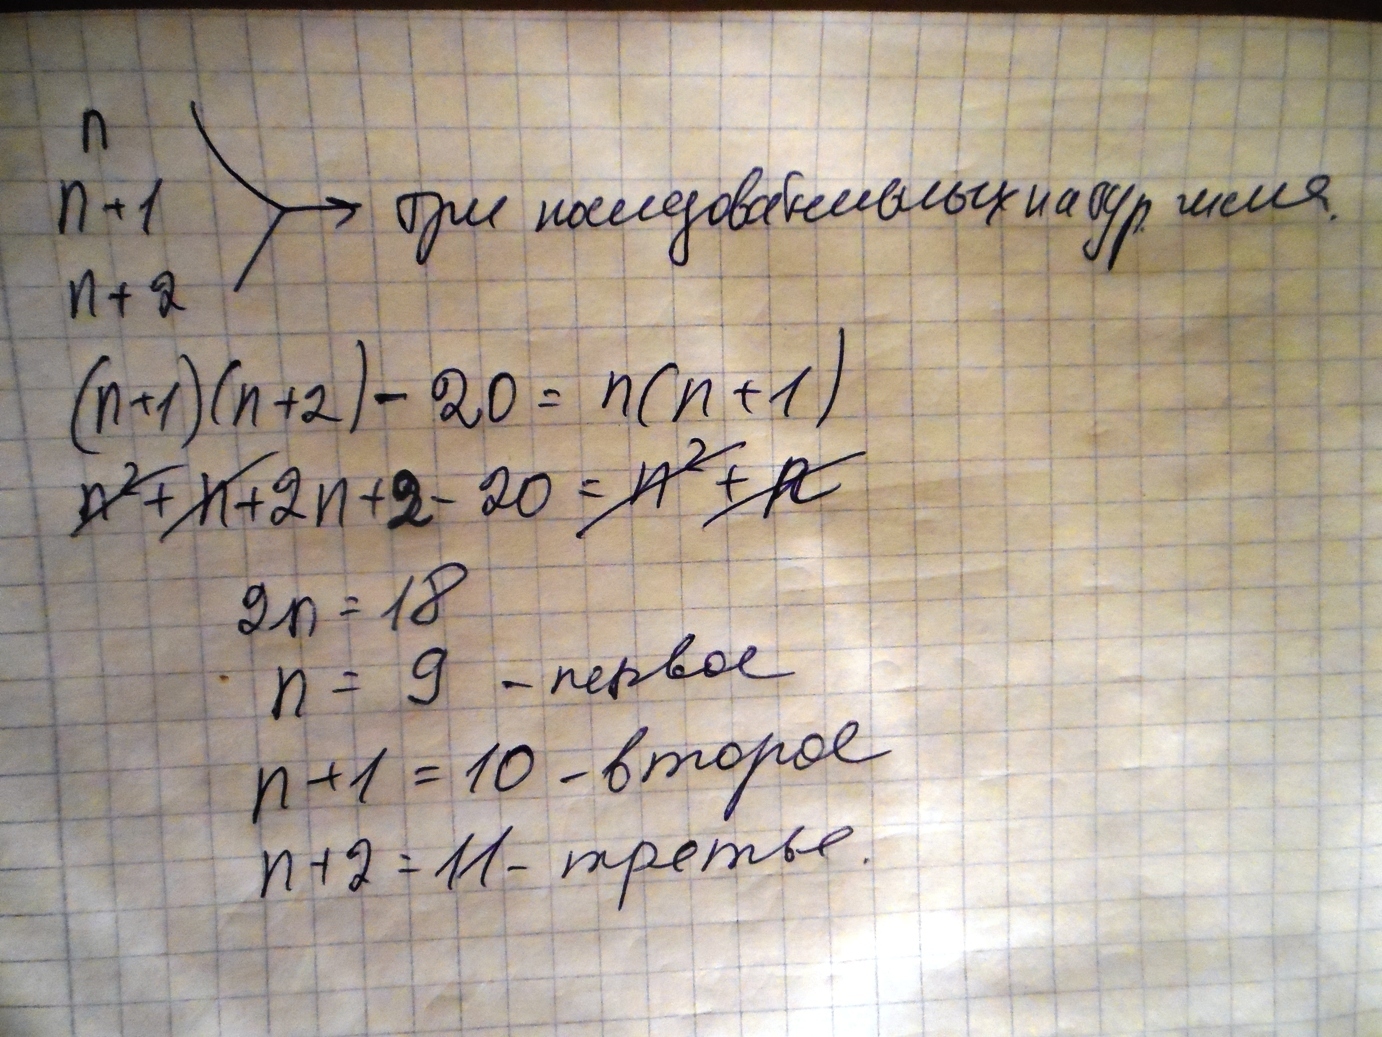 n
n+1 → три последовательных натур. числа.
n+2
(n+1)(n+2)-20=n(n+1)
n²+n+2n+2-20=n²+n
2n=18
n=9 - первое
n+1=10 - второе
n+2=11 - третье.